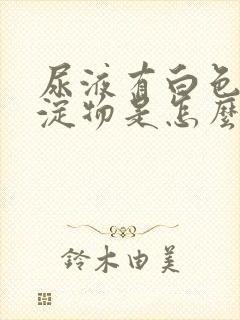 尿液有白色
淀物是怎麼
鈴木由美